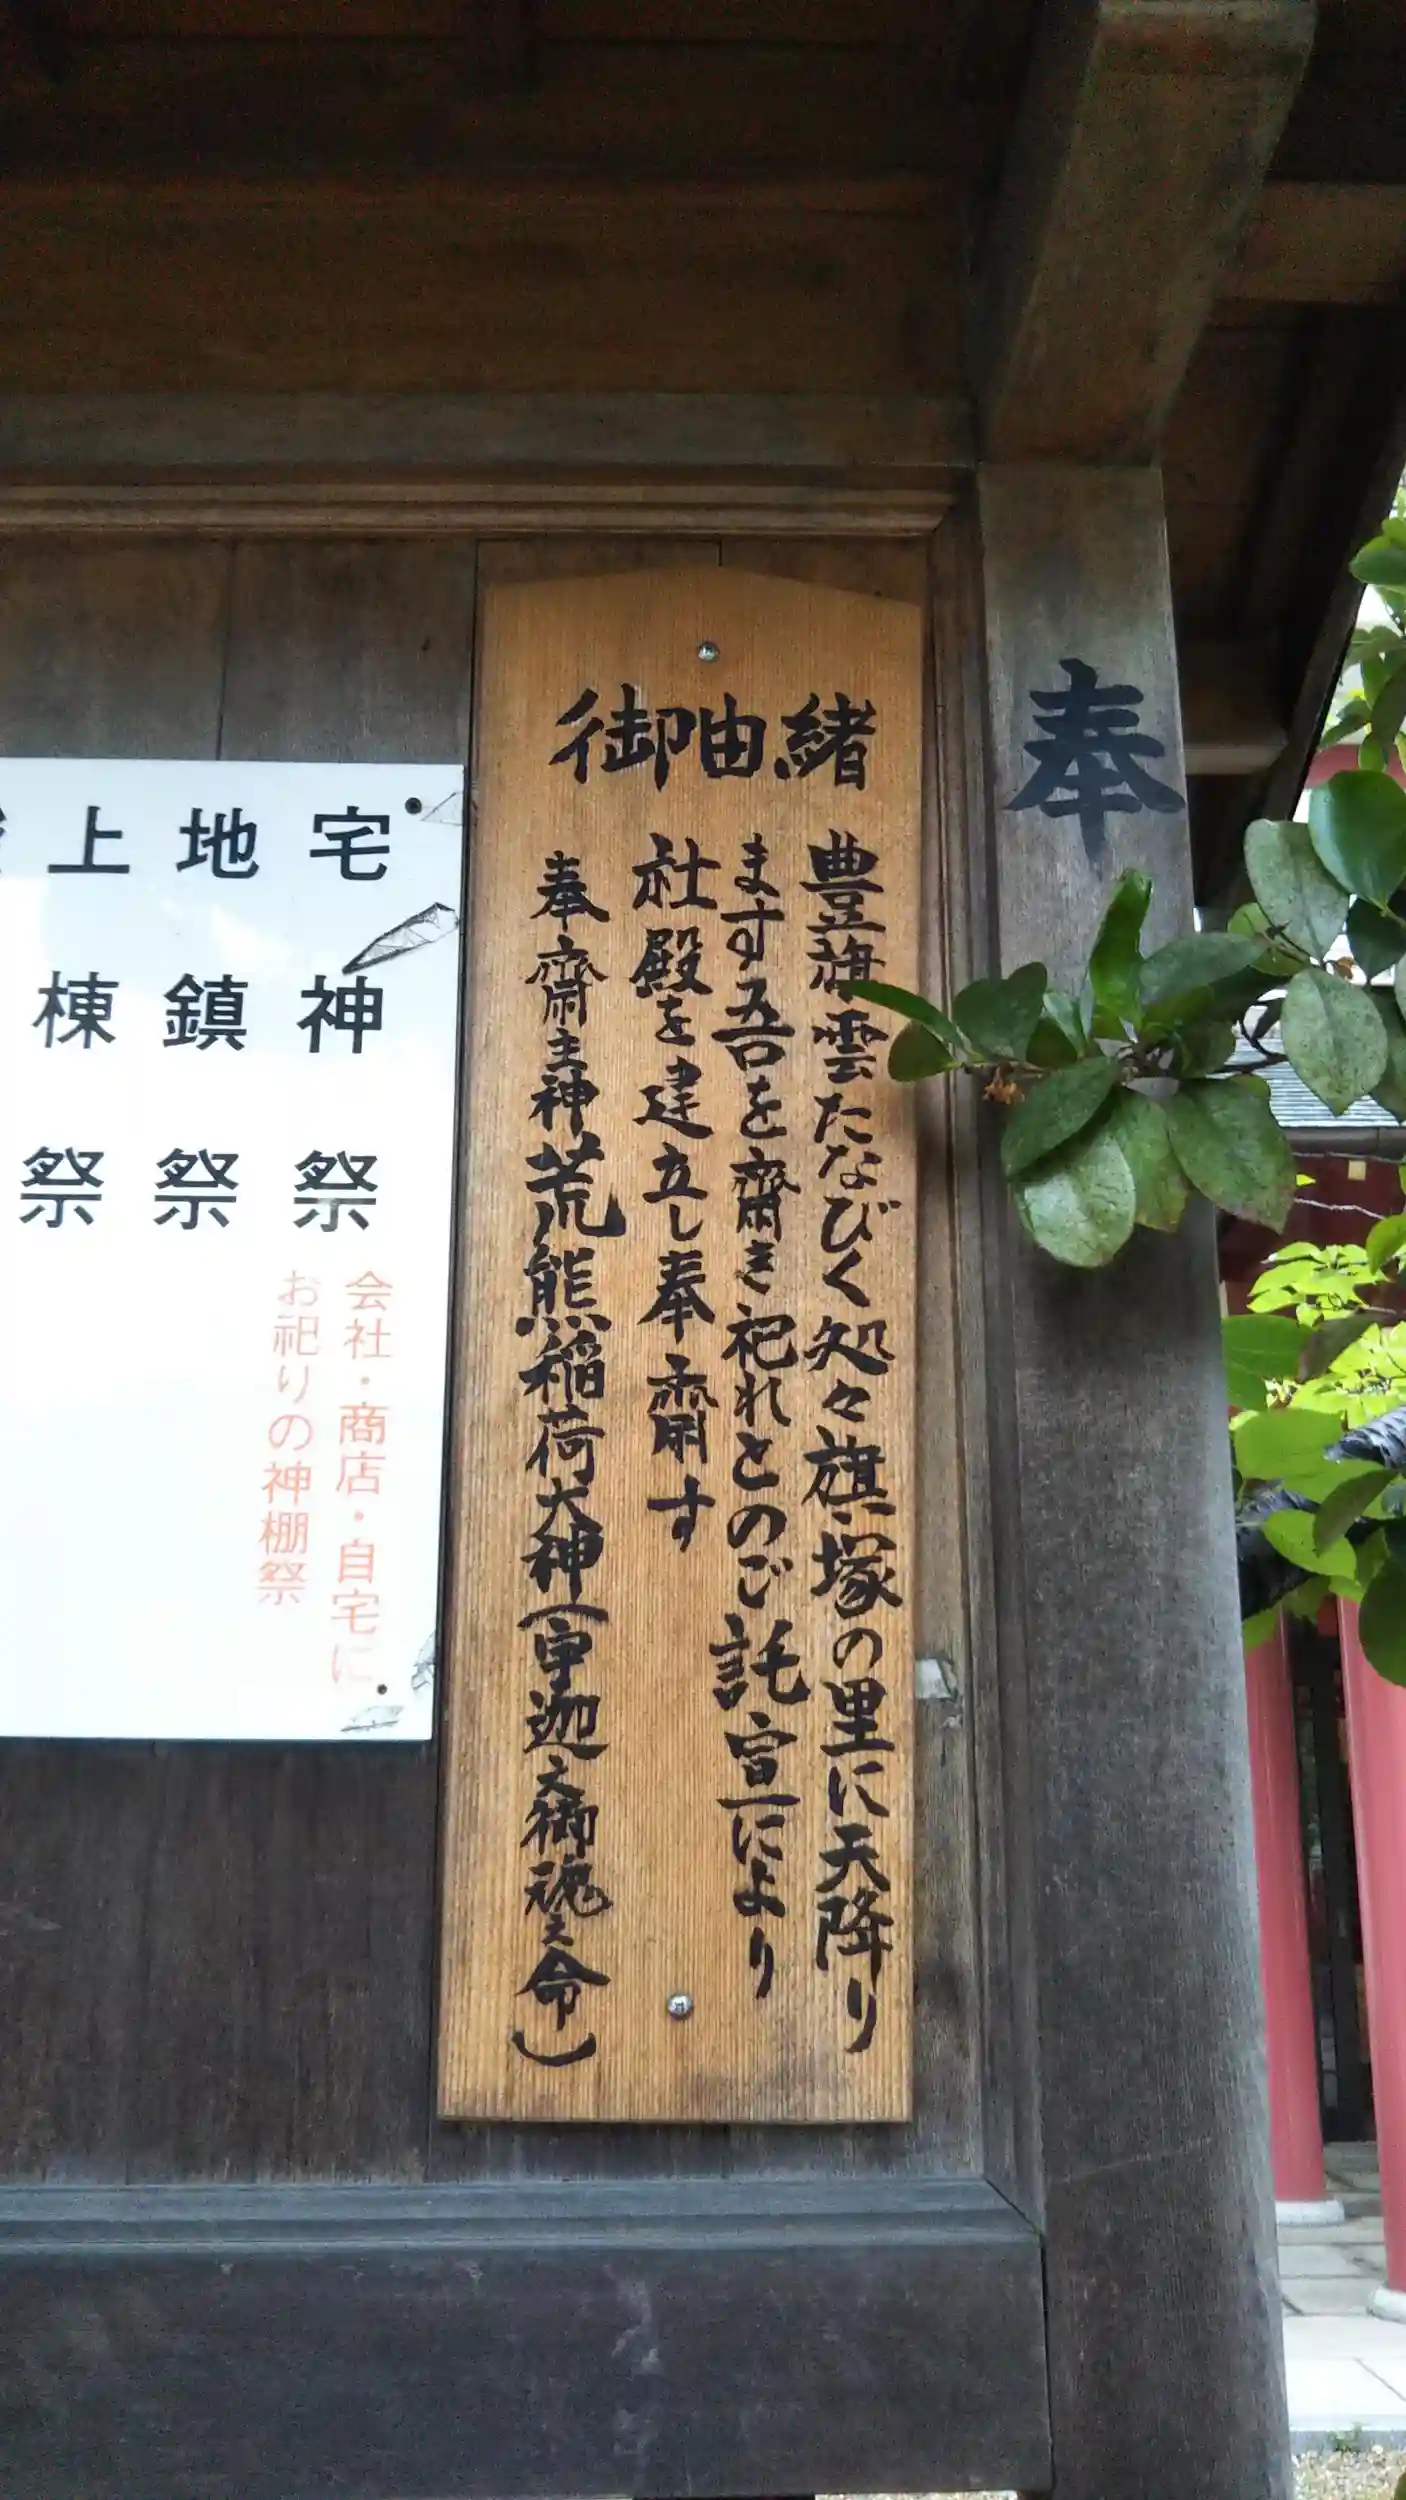 奉
御由緒
豊旗雲たなびく処々旗塚の里に天降り
ます吾を齋き祀れとのご託宣により
社殿を建立し奉齋す
奉齋主神荒熊稲荷大神(宇迦之御魂之命)
宅神祭
会社・商店・自宅に
お祀りの神棚祭
地鎮祭
上棟祭